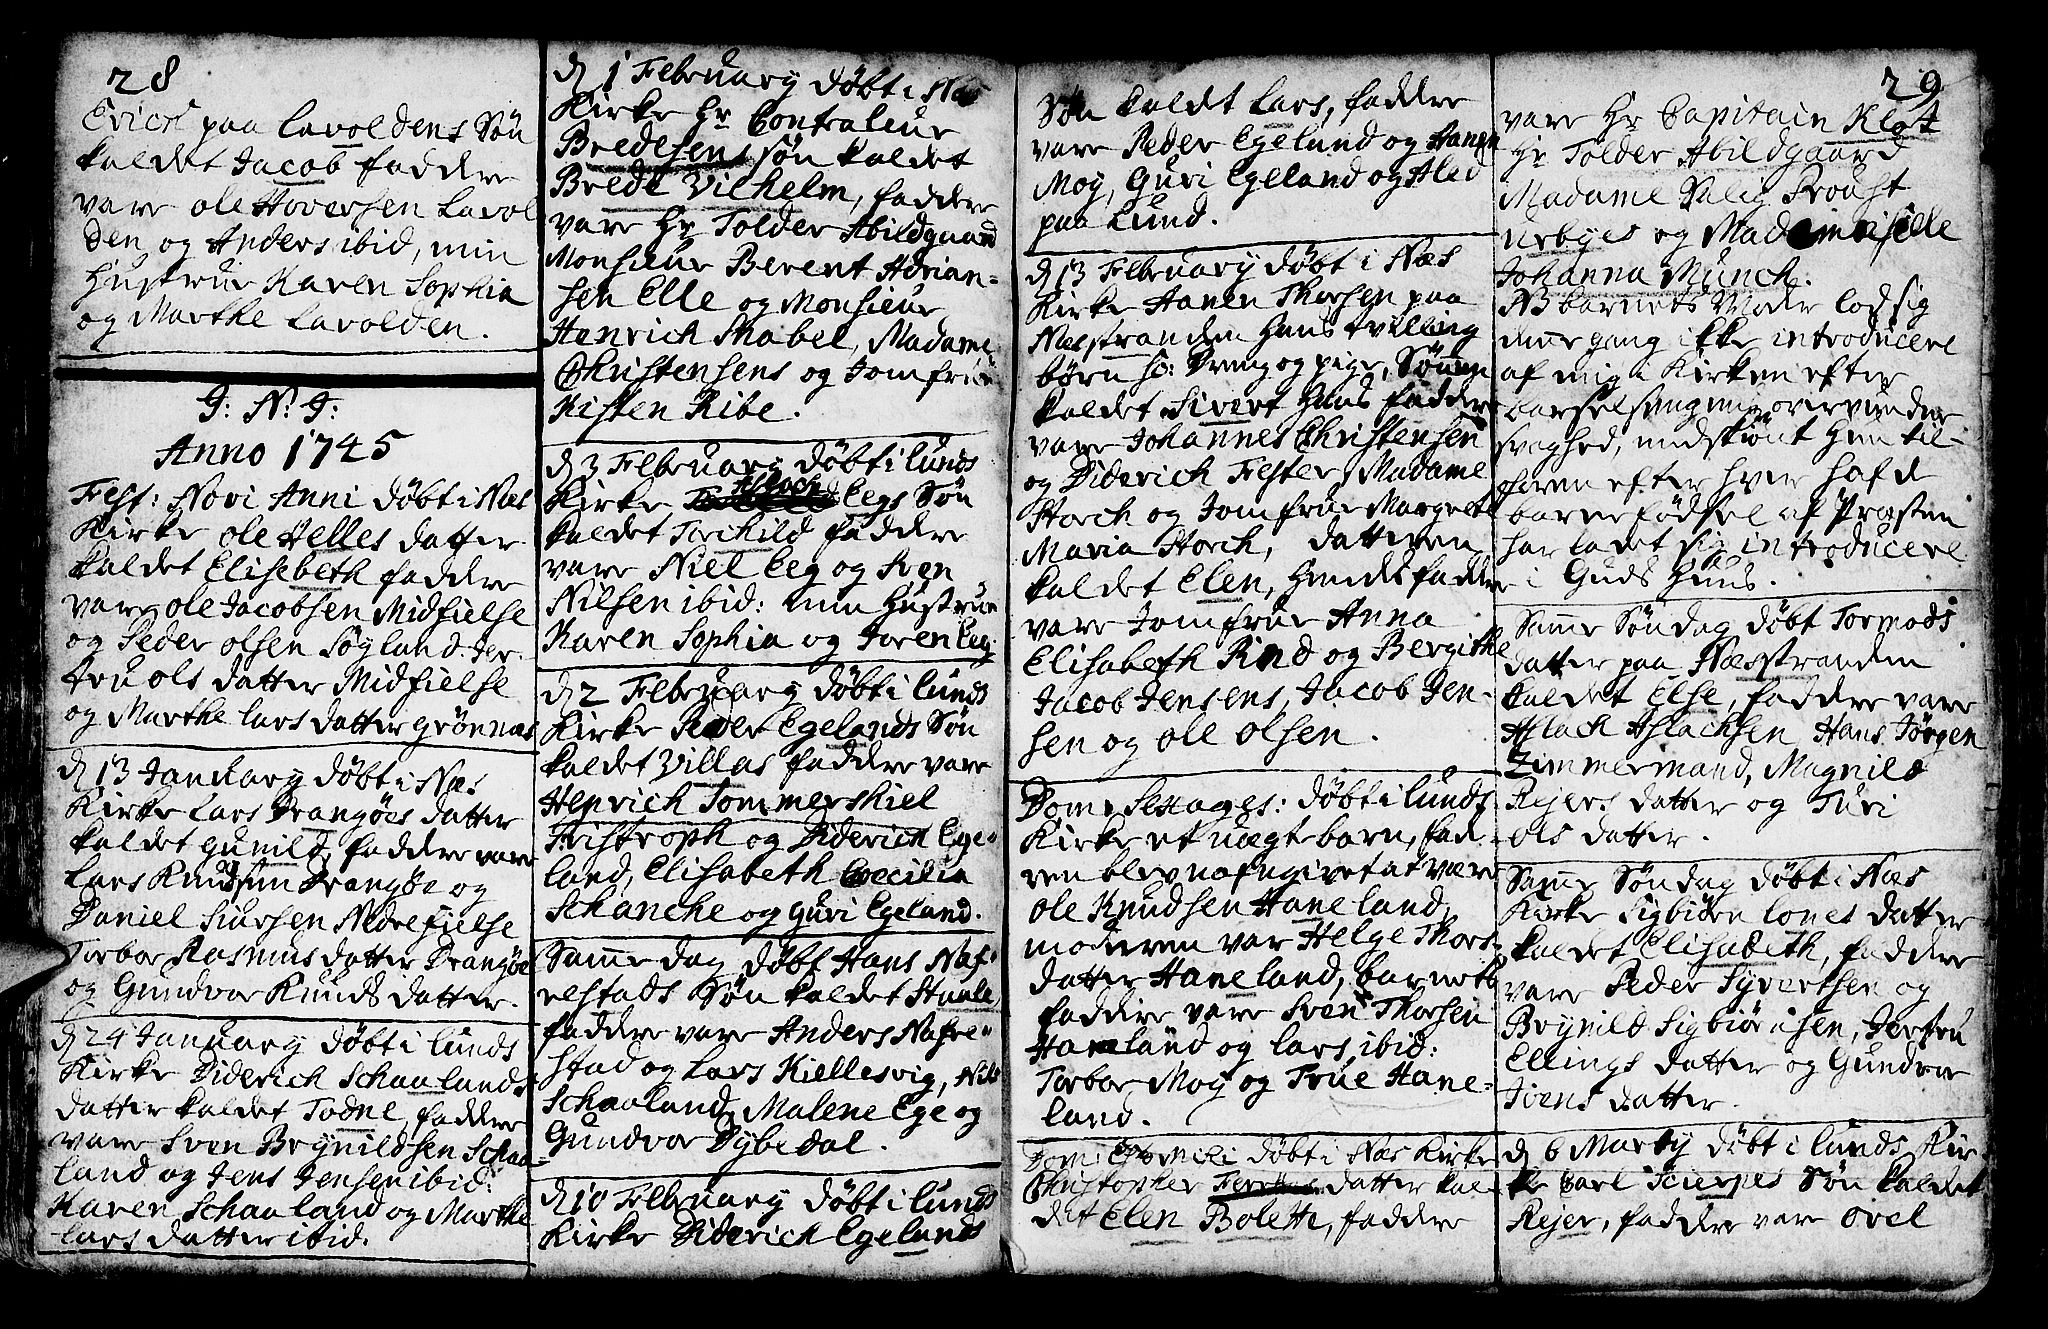 28
Erichs paa Lavoldens Søn
kaldet Jacob faddere
vare ole Hoversen Lavol
den og Anders ibid, min
Hustrue Karen Sophia
og Marthe Lavolden.
J: N: J:
Anno 1745
Fest: Novi Anni døbt i Næs
Kirke ole Helles datter
kaldet Elisebeth faddere
vare ole Jacobsen Midfielse
og Peder olsen Søgland. Jer
tru ols datter Midfielse
og Marthe lars datter grønnæs
d 13 Januarij døbt i Næs
Kirke Lars Drangøes datter
kaldet gunild, faddere vare
Lars Knudsen Drangøe og
Daniel Siursen Nedrefielse
Torbor Rasmus datter Drangøe
og Gundvor Knuds datter.
d 24 Januarij døbt i lunds
Kirke Diderich Schaalands
datter kaldet Todne, faddere
vare Sven Brynildsen Schaa
land og Jens Jensen ibid:
Karen Schaaland og Marthe
Lars datter ibid.
d 1 Februarij døbt i Næs
Kirke Hr Contraleur
Bredesens søn kaldet
Brede Vilhelm, faddere
vare Hr Tolder Abildgaard
Monsieur Berent Adrian=
sen Elle og Monsieur
Henrich Stabel, Madame
Christensens og Jomfrue
Kisten Ribe.
d 3 Februarij døbt i lunds
Kirke Aslach Eegs Søn
kaldet Torchild faddere
vare Niel Eeg og Sven
Nilsen ibid: min Hustrue
Karen Sophia og Joren Eeg.
d 2 Februarij døbt i lunds
Kirke Peder Egelands Søn
kaldet Villas faddere vare
Henrich Tommerskiel
Fristroph og Diderich Ege=
land, Elisabeth Cecilia
Schancke og Guri Egeland.
Samme dag døbt Hans Naf=
restads Søn kaldet Staale,
faddere vare Anders Nafre=
stad og Lars Kiellesvig, Nils
Schaaland, Malene Ege og
Gundvor Dybedal.
d 10 Februarij døbt i lunds
Kirke Diderich Egelands
Søn kaldet Lars, faddere
vare Peder Egeland og Hanen
Moy, Guri Egeland og Aled
paa Lund.
d 13 Februarij døbt i Næs
Kirke Hanen Thorsen paa
Næsstranden Hans tvilling
børn sc: Dreng og pige, Sønnen
kaldet Sivert Hans faddere
vare Johannes Christensen
og Diderich Fester, Madame
Storch og Jomfrue Margrete
Maria Storch, datteren
kaldet Elen, Hendes faddere
vare Jomfrue Anna
Elisabeth Rind og Bergithe
Jacob Jensens, Jacob Jen=
sen og ole olsen.
Dom: Sexages: døbt i lunds
Kirke et uægte barn, fad=
ren blev nafngivet at være
ole Knudsen Haneland,
moderen var Helge Thors
datter Haneland, barnets
faddere vare Sven Thorsen
Haneland og Lars ibid:
Torbor Moy og True Hane=
land.
Dom: Estomihi døbt i Næs Kirke
Christopher datter kal=
det Elen Bolette, faddere
29
vare Hr Capitain Klot
Hr Tolder Abildgaard
Madame Salig Proust
Urbyes og Mademoiselle
Johanna Munch.
NB barnets Moder lod sig
denne gang ikke introducere
af mig i Kirken efter
barselsengens overvundne
svaghed, endskiønt hun til=
foren efter hver hafde
barnefødsel af Præsten
har ladet sig introducere
i Guds Huus.
Samme Søndag døbt Tormods
datter paa Næsstranden
kaldet Else, faddere vare
Aslach Aslachsen Hans Jørgen
Zimmermand, Magnild
Rejers datter og Turi
ols datter.
Samme Søndag døbt i Næs
Kirke Sigbiørn Lones datter
kaldet Elisabeth, faddere
vare Peder Syvertsen og
Brynild Sigbiørnsen, Jertru
Ellings datter og Gundvor
Ivens datter.
d 6 Martij døbt i lunds Kir
ke Carl Scierpes Søn kaldet
Rejer, faddere vare ovel